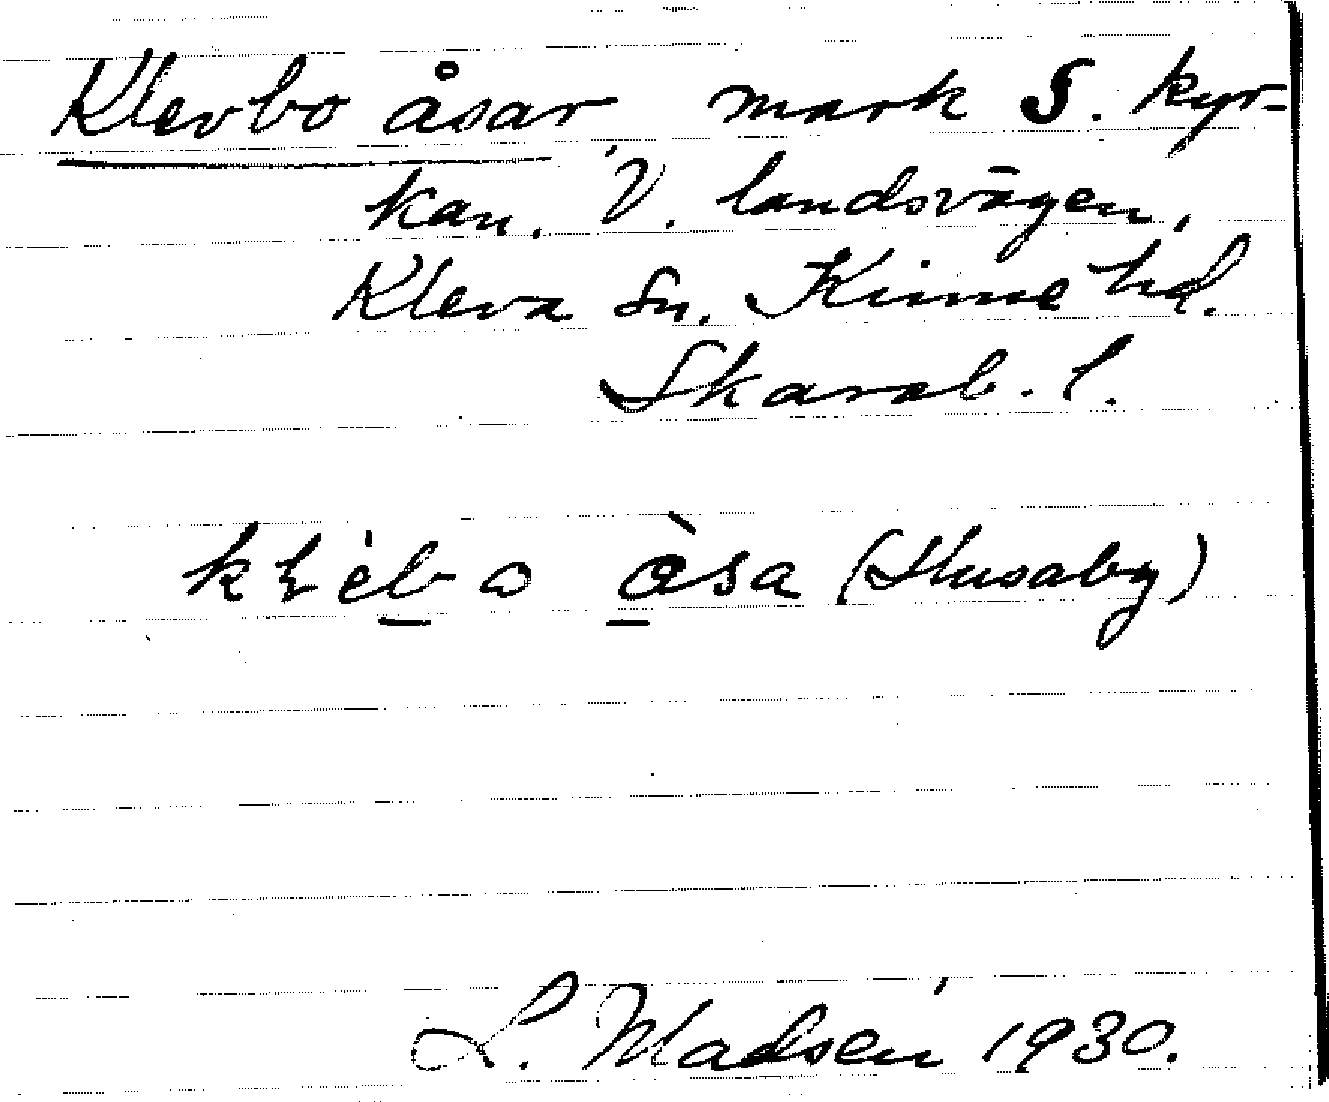 Klevbo åsar, mark S. kyr-
kan, V. landsvägen,
Kleva sn. Kinne hd.
Skarab. l.
klèbo åsa (Husaby)
L. Madsén 1930.